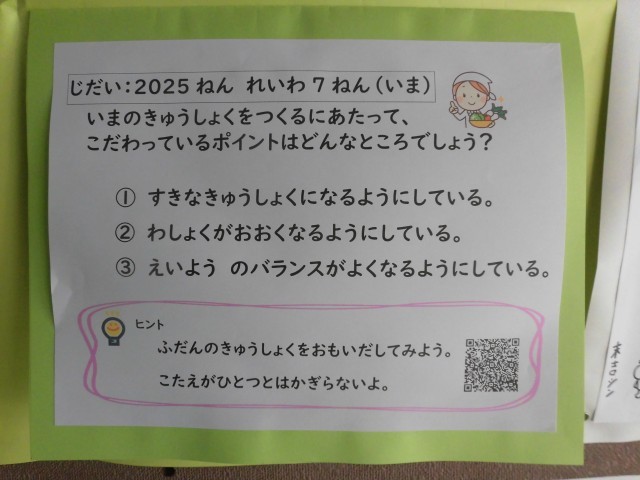 じだい：2025ねん れいわ7ねん(いま)
いまのきゅうしょくをつくるにあたって、
こだわっているポイントはどんなところでしょう？
① すきなきゅうしょくになるようにしている。
② わしょくがおおくなるようにしている。
③ えいよう のバランスがよくなるようにしている。
ヒント
ふだんのきゅうしょくをおもいだしてみよう。
こたえがひとつとはかぎらないよ。